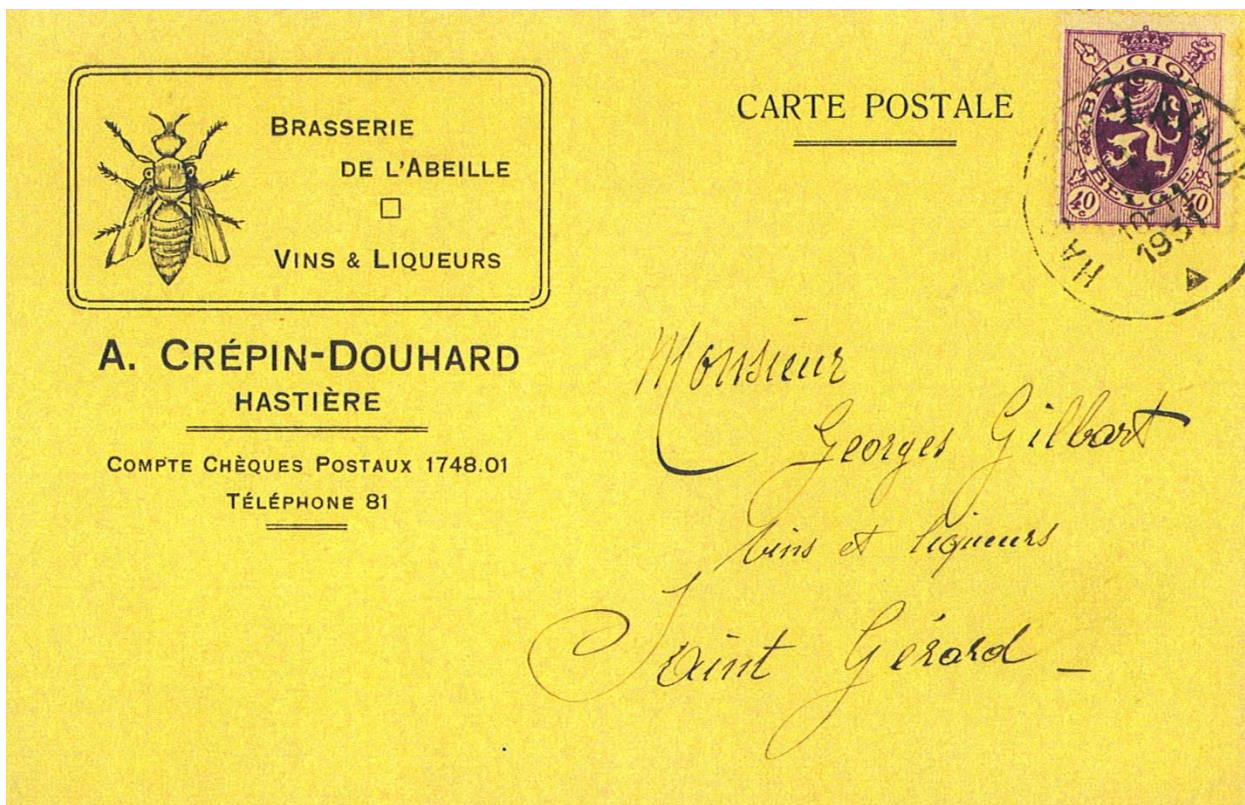 BRASSERIE
DE L'ABEILLE
VINS & LIQUEURS
A. CRÉPIN-DOUHARD
HASTIÈRE
COMPTE CHÈQUES POSTAUX 1748.01
TÉLÉPHONE 81
CARTE POSTALE
BELGIQUE
BELGIE
40c 40c
1931
Monsieur
Georges Gilbart
Vins et liqueurs
Saint Gérard -